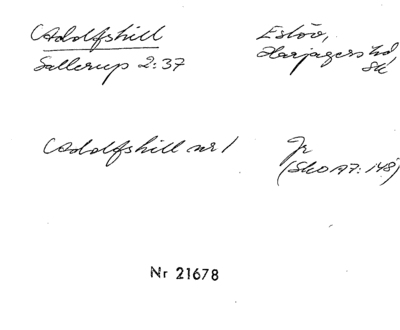 Adolfshill
Eslöv,
Sallerup 2:37
Harjagers hd
Sk
Adolfshill nr 1
Jr
(SkO A7:148)
Nr 21678